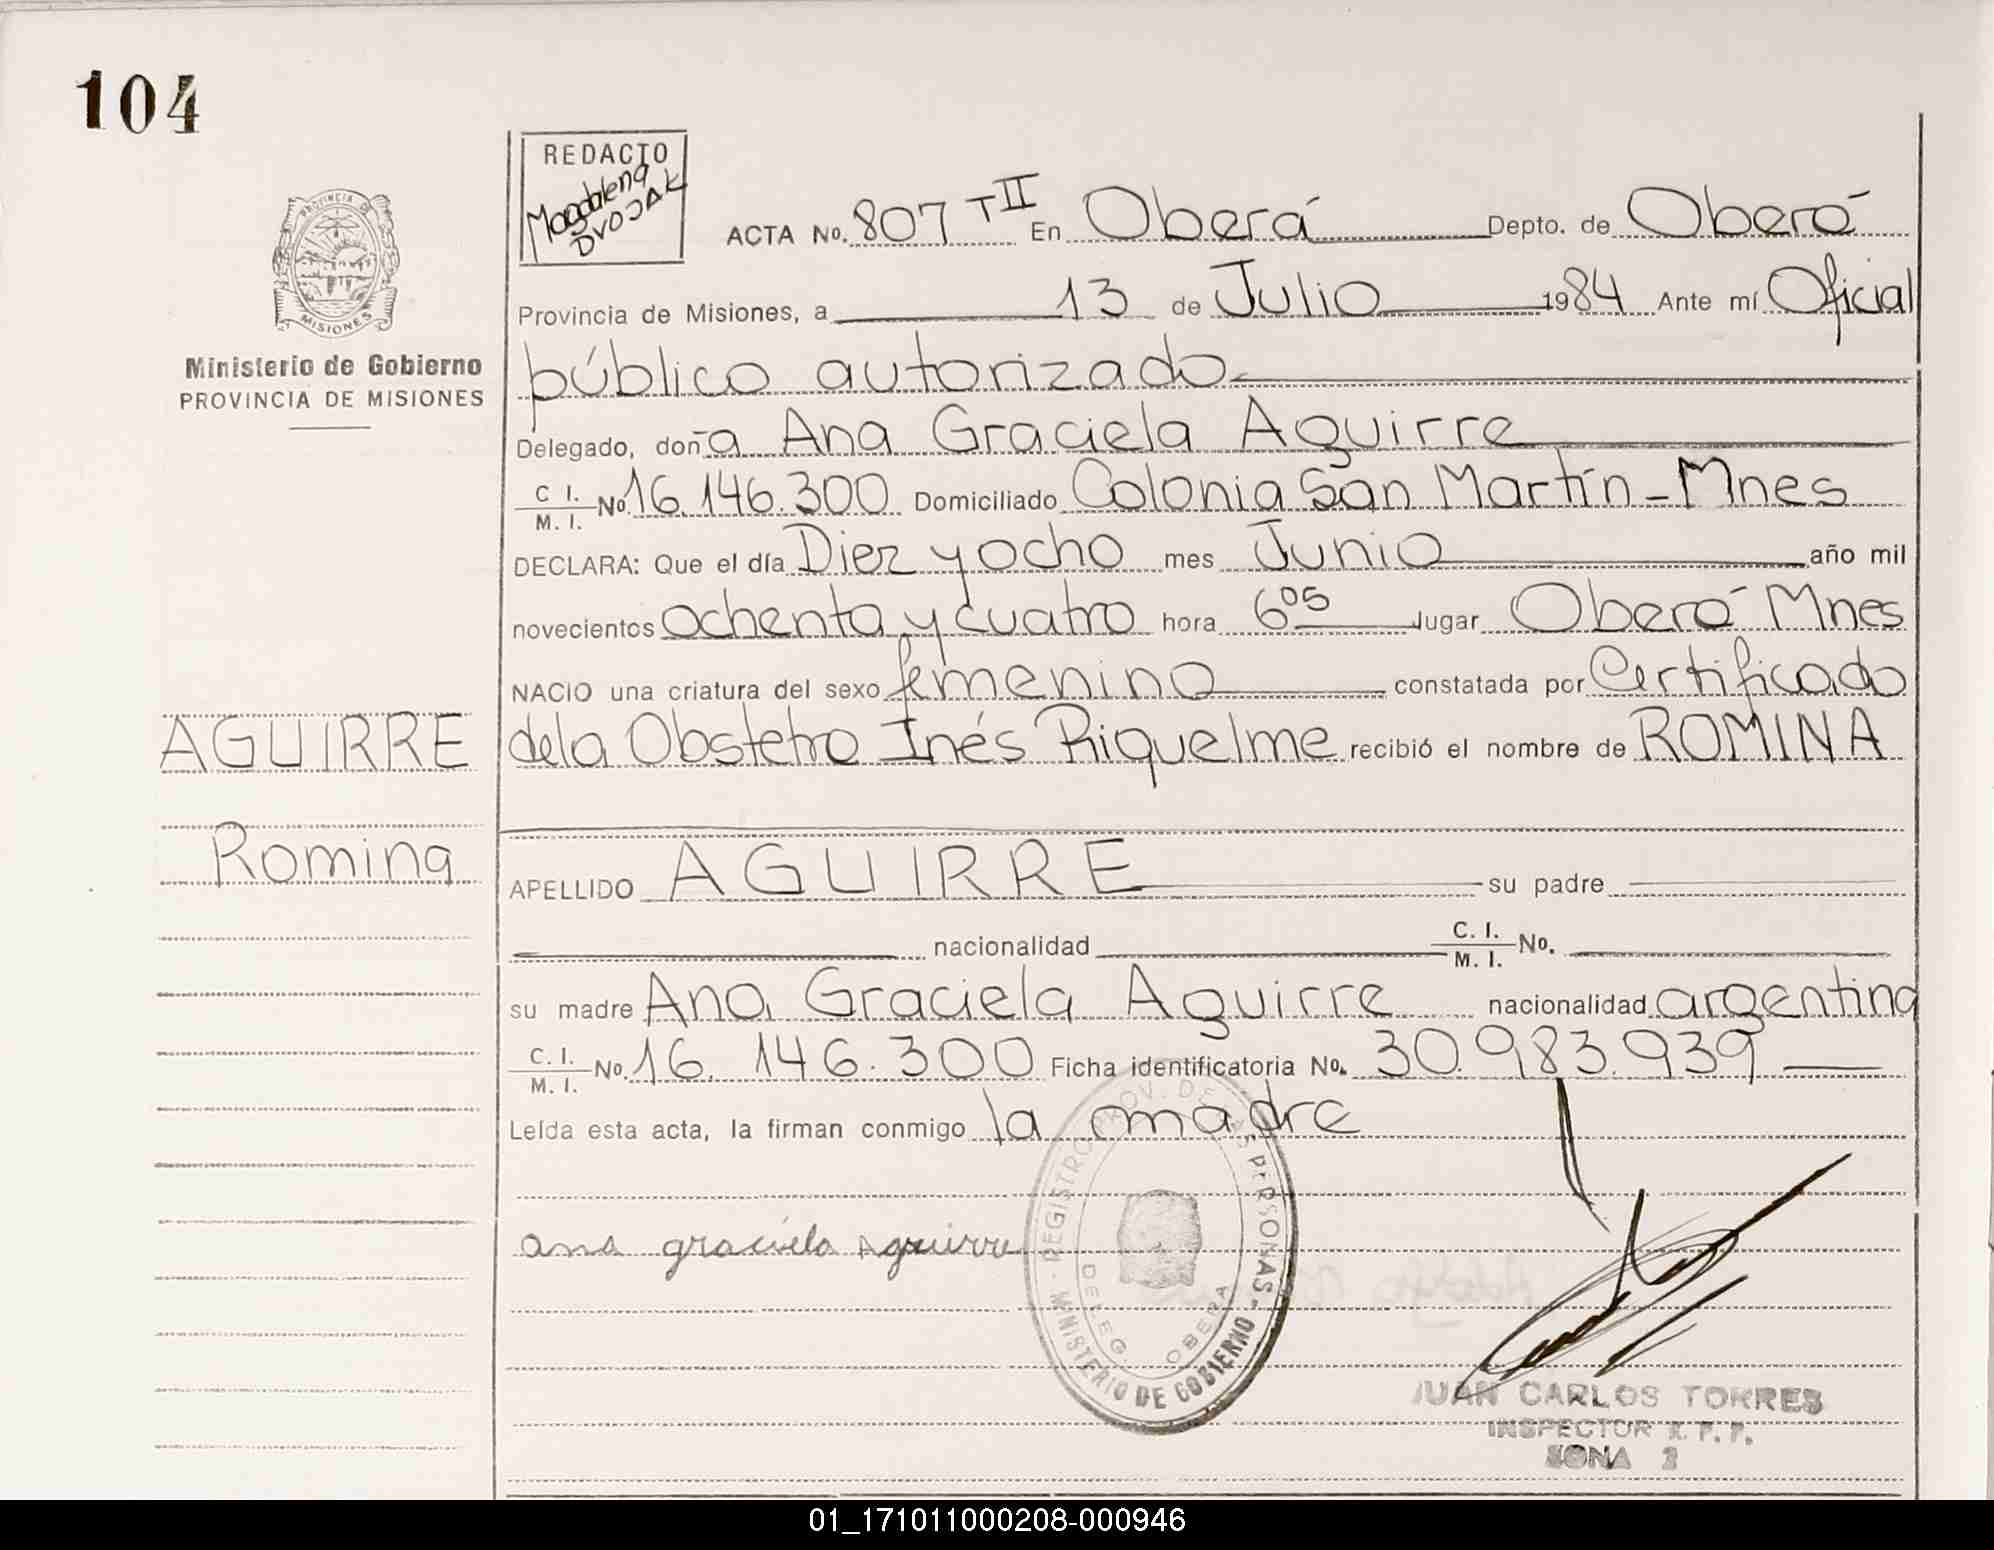 104
REDACTO
Magdalena
DVOJAK
PROVINCIA DE
MISIONES
Ministerio de Gobierno
PROVINCIA DE MISIONES
ACTA No. 807 TII En Oberá Depto. de Oberá
Provincia de Misiones, a 13 de Julio 1984 Ante mí Oficial
público autorizado
Delegado, doña Ana Graciela Aguirre
C I. / M. I. No. 16.146.300 Domiciliado Colonia San Martín - Mnes
DECLARA: Que el día Diez y ocho mes Junio año mil
novecientos ochenta y cuatro hora 6 05 lugar Oberá Mnes
NACIO una criatura del sexo femenino constatada por Certificado
AGUIRRE
de la Obstetra Inés Riquelme recibió el nombre de ROMINA
Romina
APELLIDO AGUIRRE su padre
nacionalidad C. I. / M. I. No.
su madre Ana Graciela Aguirre nacionalidad argentina
C. I. / M. I. No. 16.146.300 Ficha identificatoria No. 30.983.939
Leída esta acta, la firman conmigo la madre
ana graciela Aguirre
REGISTRO PROV. DE LAS PERSONAS - MINISTERIO DE GOBIERNO
DELEG OBERA
JUAN CARLOS TORRES
INSPECTOR R. P. P.
ZONA 2
01_171011000208-000946